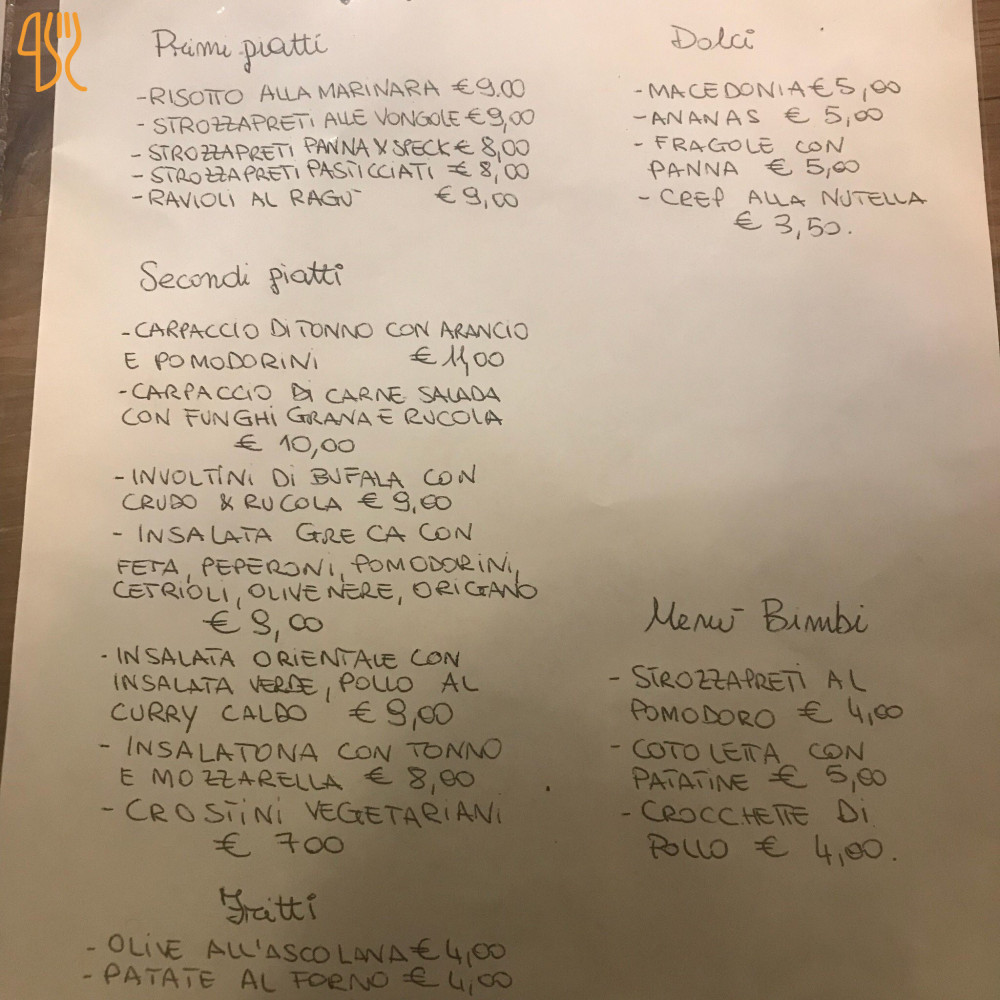 Primi piatti
- RISOTTO ALLA MARINARA € 9.00
- STROZZAPRETI ALLE VONGOLE € 9,00
- STROZZAPRETI PANNA & SPECK € 8,00
- STROZZAPRETI PASTICCIATI € 8,00
- RAVIOLI AL RAGÙ € 9,00
Secondi piatti
- CARPACCIO DI TONNO CON ARANCIO
E POMODORINI € 11,00
- CARPACCIO DI CARNE SALADA
CON FUNGHI GRANA E RUCOLA
€ 10,00
- INVOLTINI DI BUFALA CON
CRUDO & RUCOLA € 9,00
- INSALATA GRECA CON
FETA, PEPERONI, POMODORINI,
CETRIOLI, OLIVE NERE, ORIGANO
€ 9,00
- INSALATA ORIENTALE CON
INSALATA VERDE, POLLO AL
CURRY CALDO € 9,00
- INSALATONA CON TONNO
E MOZZARELLA € 8,00
- CROSTINI VEGETARIANI
€ 700
Fritti
- OLIVE ALL'ASCOLANA € 4,00
- PATATE AL FORNO € 4,00
Dolci
- MACEDONIA € 5,00
- ANANAS € 5,00
- FRAGOLE CON
PANNA € 5,00
- CREP ALLA NUTELLA
€ 3,50.
Menù Bimbi
- STROZZAPRETI AL
POMODORO € 4,00
- COTOLETTA CON
PATATINE € 5,00
- CROCCHETTE DI
POLLO € 4,00.